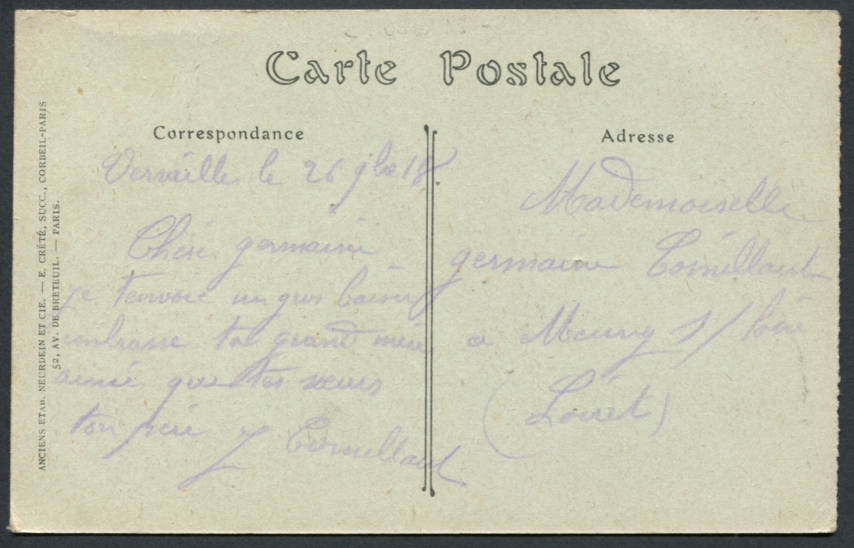 Carte Postale
Correspondance
Adresse
ANCIENS ETAB. NEURDEIN ET CIE. — E. CRÉTÉ, SUCC., CORBEIL-PARIS
52, AV. DE BRETEUIL. — PARIS.
Versaille le 26 9bre 18
Chere germaine
je tenvoie un gros baiser
embrasse ta grand mere
ainsi que tes sœurs
ton père J Cornillault
Mademoiselle
germaine Cornillault
a Meung s/ Loire
(Loiret)